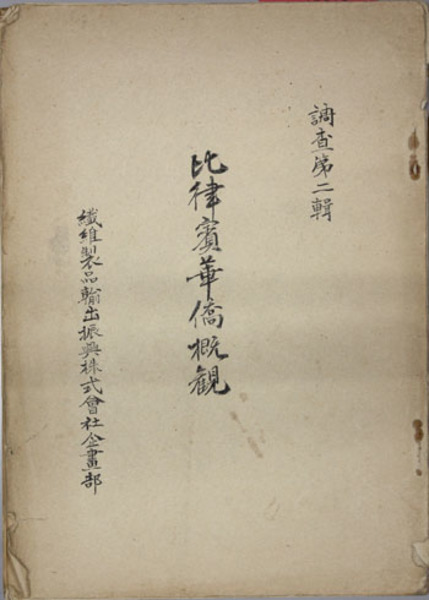 調査第二輯
比律賓華僑概観
纖維製品輸出振興株式會社企畫部